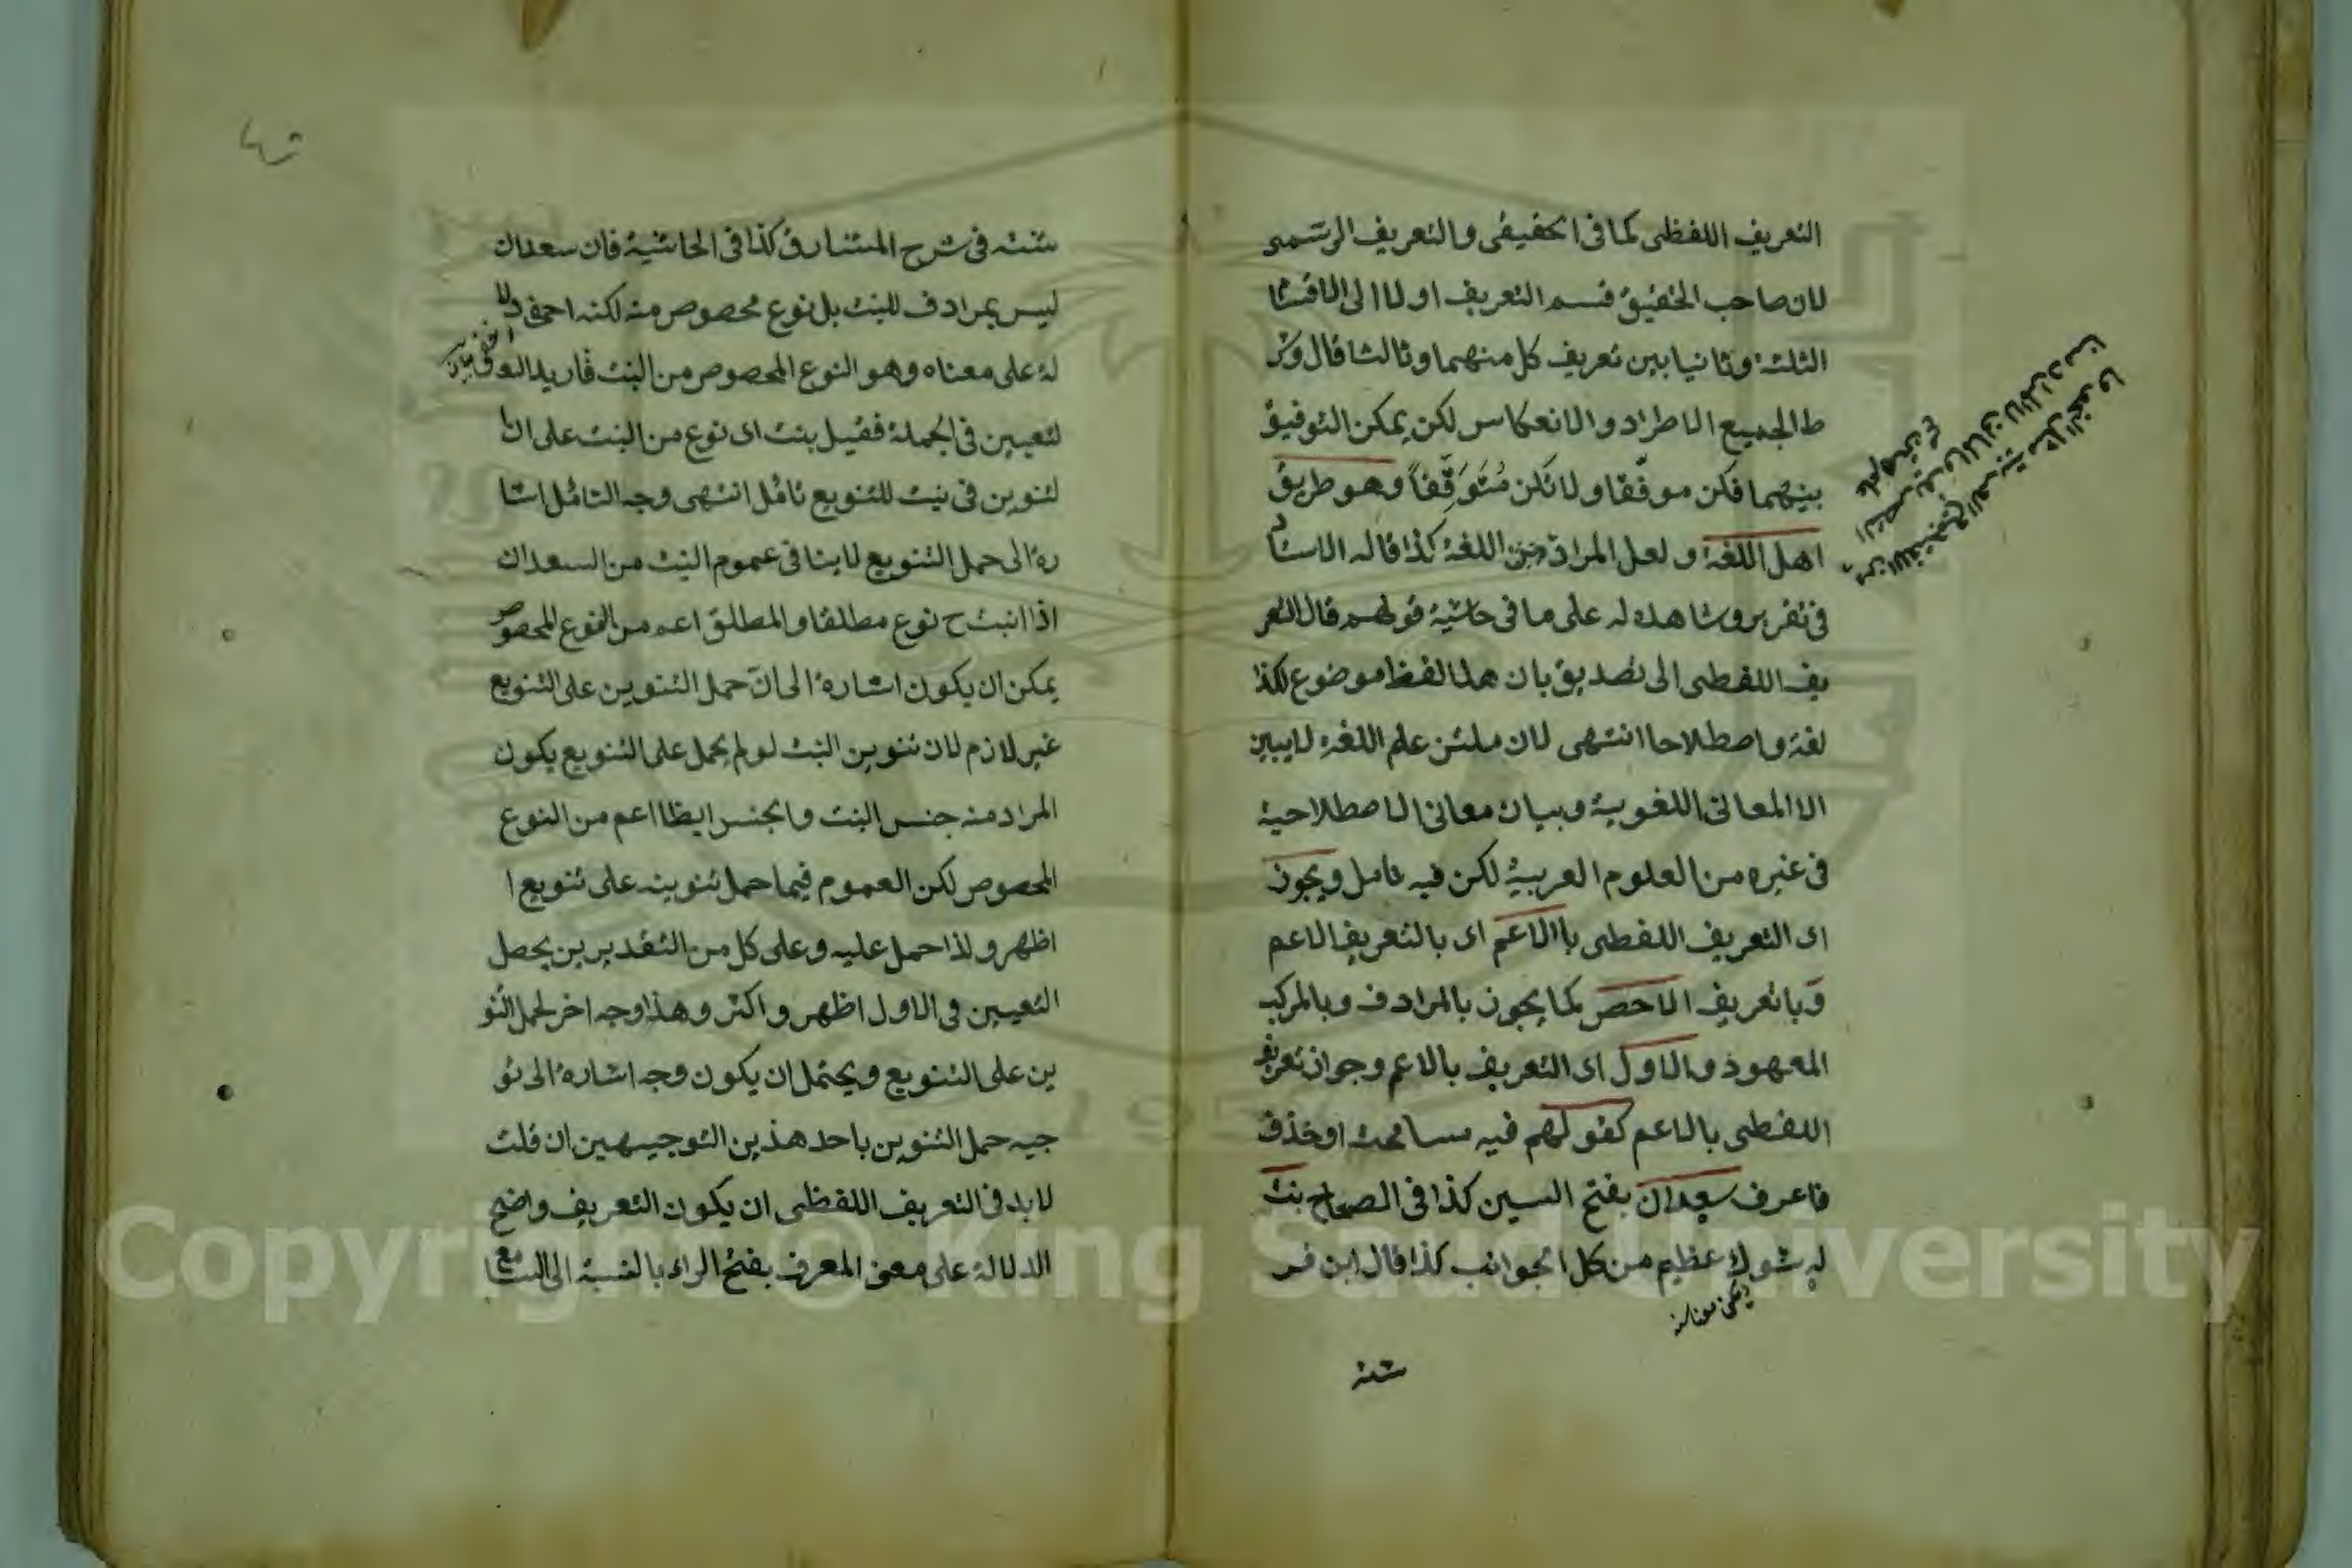 التعريف اللفظى كما فى الحقيقى والتعريف الرسمى
لان صاحب الحقيق قسم التعريف اولا الى الاقسا
الثلثة وثانيا بين تعريف كل منهما وثالثا قال وشر
ط الجميع الاطراد والانعكاس لكن يمكن التوفيق
بينهما فكن موفقا ولا تكن متوقفا وهو طريق
اهل اللغة ولعل المراد من اللغة كذا قاله الاستا
فى تقريره وشاهده له على ما فى حاشية قولهم قال التعر
يف اللفطى الى تصديق بان هذا لفظ موضوع لكذا
لغة واصطلاحا انتهى لان علم اللغة لا يبين
الا المعانى اللغوية وبيان معانى الاصطلاحية
فى غيره من العلوم العربية لكن فيه تامل ويجوز
اى التعريف اللفطى بالاعم اى بالتعريف الاعم
وبا تعريف الاخص كما يجوز بالمرادف وبالمركب
المعهود والاول اى التعريف بالاعم وجواز تعريف
اللفطى بالاعم كقولهم فيه مسامحة او حذف
فاعرف سعدان بفتح السين كذا فى الصحاح بنت
له شوك عظيم من كل الجوانب كذا قال ابن فر
شته
شته فى شرح المشارق كذا فى الحاشية فان سعدان
ليس بمرادف للنبت بل نوع مخصوص منه لكنه اخفى دلا
لة على معناه وهو النوع المخصوص من النبت فاريد
لتعيين فى الجملة فقيل بنت اى نوع من النبت على ان ا
لتنوين فى نبت للتنويع تامل انتهى وجه التامل اشا
رة الى حمل التنويع لا ينا فى عموم النبت من السعدان
اذا النبت ح نوع مطلقا والمطلق اعم من النوع المخصوص
يمكن ان يكون اشارة الى ان حمل التنوين على التنويع
غير لازم لان تنوين النبت لو لم يحمل على التنويع يكون
المراد منه جنس النبت والجنس ايظا اعم من النوع
المخصوص لكن العموم فيما حمل تنوينه على تنويع ا
اظهر ولذا حمل عليه وعلى كل من التقديرين يحصل
التعيين فى الاول اظهر واكثر وهذا وجه اخر لحمل التنو
ين على التنويع ويحتمل ان يكون وجه اشارة الى تو
جيه حمل التنوين باحد هذين التوجيهين ان قلت
لا بد فى التعريف اللفظى ان يكون التعريف واضح
الدلالة على معنى المعرف بفتح الراء بالنسبة الى السا مع
Copyright © King Saud University